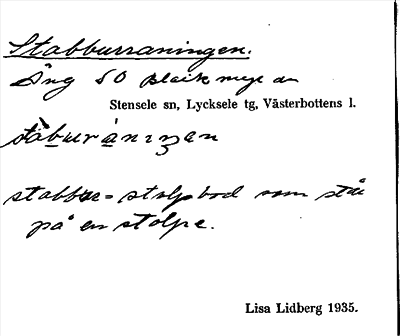 Stabburraningen.
Äng SO
Stensele sn, Lycksele tg, Västerbottens l.
stabbur = stolpbod som står
på en stolpe.
Lisa Lidberg 1935.